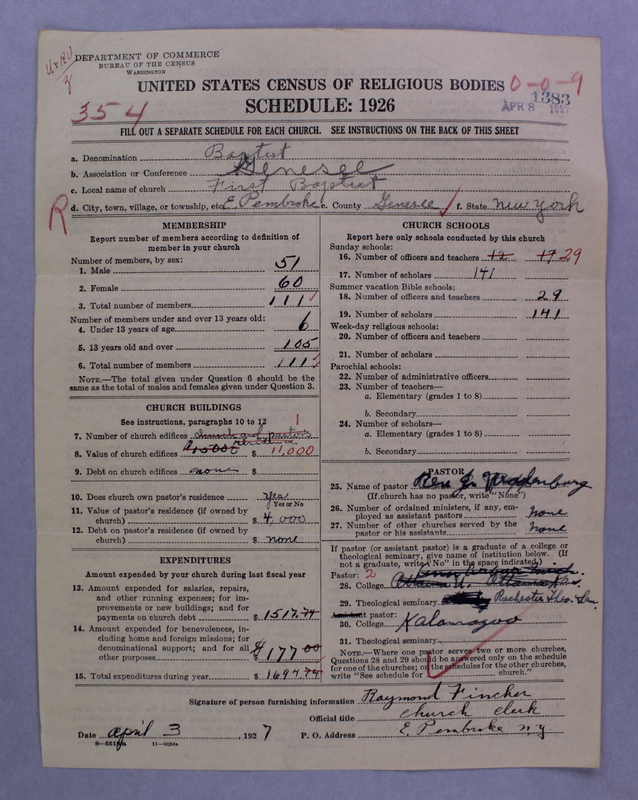 U+RU
3
DEPARTMENT OF COMMERCE
BUREAU OF THE CENSUS
WASHINGTON
UNITED STATES CENSUS OF RELIGIOUS BODIES 0-0-9
SCHEDULE: 1926
354
1383
APR 8 1927
FILL OUT A SEPARATE SCHEDULE FOR EACH CHURCH. SEE INSTRUCTIONS ON THE BACK OF THIS SHEET
a. Denomination Baptist
b. Association or Conference Genesee
c. Local name of church First Baptist
R
d. City, town, village, or township, etc. E. Pembroke e. County Genesee f. State New York
MEMBERSHIP
Report number of members according to definition of
member in your church
Number of members, by sex:
1. Male 51
2. Female 60
3. Total number of members 111
Number of members under and over 13 years old:
4. Under 13 years of age 6
5. 13 years old and over 105
6. Total number of members 111
NOTE.—The total given under Question 6 should be the
same as the total of males and females given under Question 3.
CHURCH BUILDINGS
See instructions, paragraphs 10 to 12
7. Number of church edifices church and pastors 1
residence
8. Value of church edifices 15000 $ 11,000
9. Debt on church edifices none $
10. Does church own pastor's residence Yes
Yes or No
11. Value of pastor's residence (if owned by
church) $ 4,000
12. Debt on pastor's residence (if owned by
church) $ none
EXPENDITURES
Amount expended by your church during last fiscal year
13. Amount expended for salaries, repairs,
and other running expenses; for im-
provements or new buildings; and for
payments on church debt $ 1517.74
14. Amount expended for benevolences, in-
cluding home and foreign missions; for
denominational support; and for all
other purposes $ 177 00
15. Total expenditures during year $ 1694.74
CHURCH SCHOOLS
Report here only schools conducted by this church
Sunday schools:
16. Number of officers and teachers 12 17 29
17. Number of scholars 141
Summer vacation Bible schools:
18. Number of officers and teachers 29
19. Number of scholars 141
Week-day religious schools:
20. Number of officers and teachers
21. Number of scholars
Parochial schools:
22. Number of administrative officers
23. Number of teachers—
a. Elementary (grades 1 to 8)
b. Secondary
24. Number of scholars—
a. Elementary (grades 1 to 8)
b. Secondary
PASTOR
25. Name of pastor Rev.
(If church has no pastor, write "None")
26. Number of ordained ministers, if any, em-
ployed as assistant pastors none
27. Number of other churches served by the
pastor or his assistants none
If pastor (or assistant pastor) is a graduate of a college or
theological seminary, give name of institution below. (If
not a graduate, write "No" in the space indicated.)
Pastor: 2
28. College Ottawa U. Ottawa Kas.
29. Theological seminary Rochester Theo. Sem.
Assistant pastor:
30. College Kalamazoo
31. Theological seminary
NOTE.—Where one pastor serves two or more churches,
Questions 28 and 29 should be answered only on the schedule
for one of the churches; on the schedules for the other churches,
write "See schedule for church."
Signature of person furnishing information Raymond Fincher
Official title church clerk
Date April 3, 1927 P. O. Address E Pembroke N Y
8—551 11—9084a